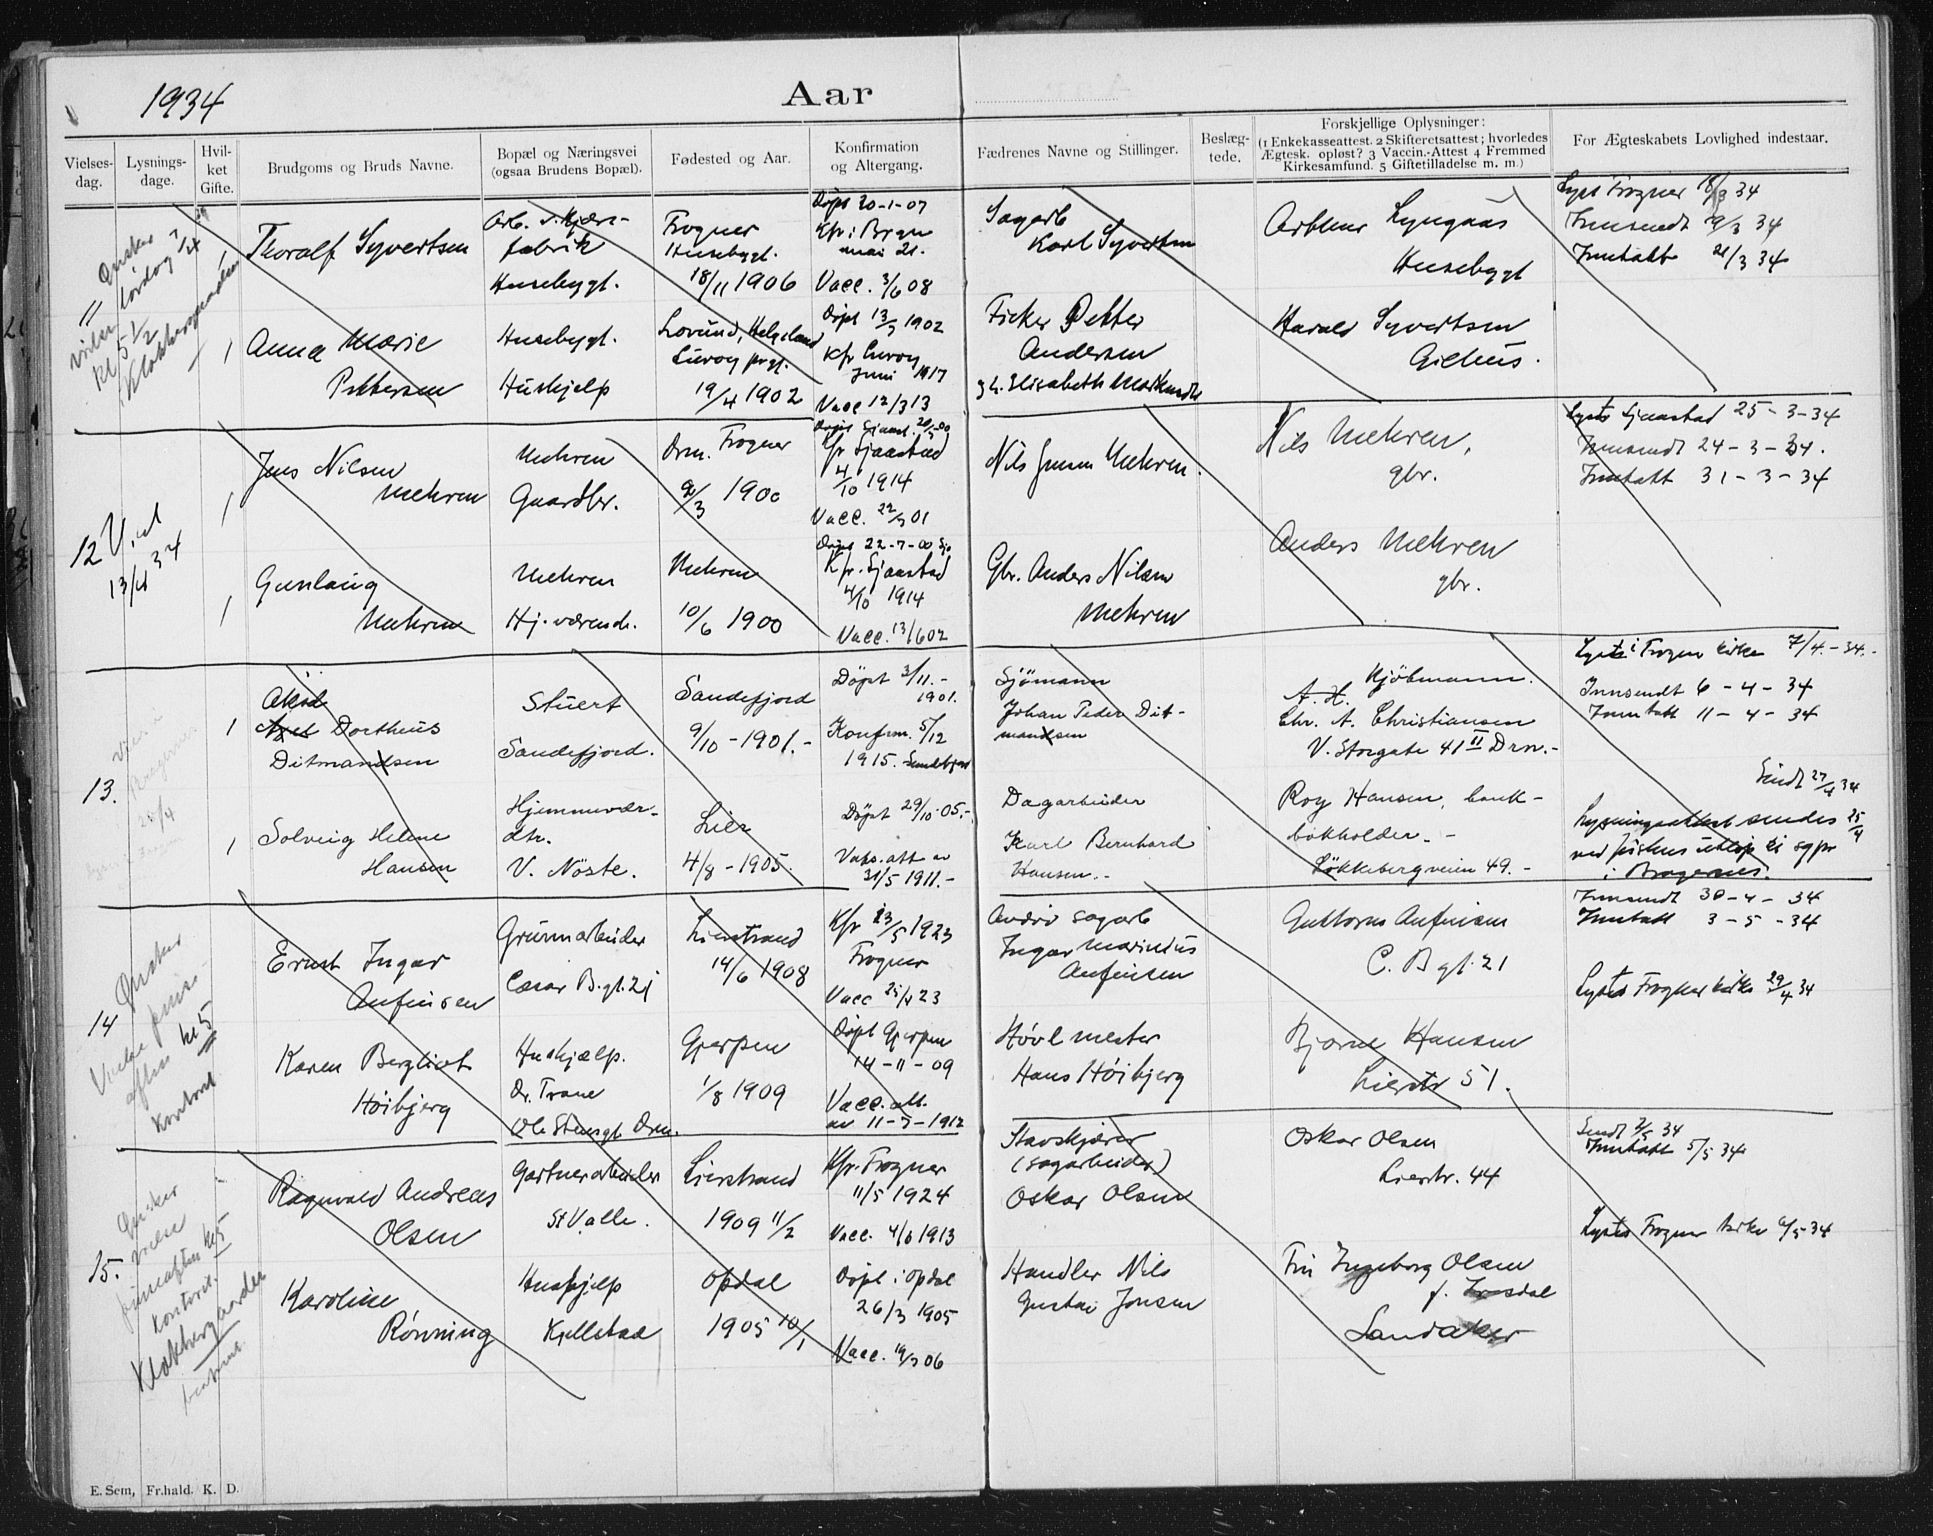 1934
Aar
Vielses-dag.
Lysnings-dage.
Hvil-ket Gifte.
Brudgoms og Bruds Navne.
Bopæl og Næringsvei (ogsaa Brudens Bopæl).
Fødested og Aar.
Konfirmation og Altergang.
Fædrenes Navne og Stillinger.
Beslæg-tede.
Forskjellige Oplysninger: (1 Enkekasseattest. 2 Skifteretsattest; hvorledes Ægtesk. opløst? 3 Vaccin.-Attest 4 Fremmed Kirkesamfund. 5 Giftetilladelse m. m.)
For Ægteskabets Lovlighed indestaar.
11 Ønsker
vielse lørdag 7/4
kl 5 1/2
1
Thoralf Syvertsen
fabrik
Husebygt.
Frogner
Husebygt.
18/11 1906
Døpt 20-1-07
Kfr i Bragn
mai 21.
Vacc. 3/6 08
Sagarb
Karl Syvertsen
Arthur Lyngaas
Husebygt
Lyst Frogner 18/3 34
Innsendt
Inntatt 21/3 34
1
Anna Marie
Pettersen
Husebygt.
Hushjelp
Lovund, Helgeland
Lurøy prgj.
19/4 1902
Døpt 13/7 1902
Kfr Lurøy
Juni 1917
Vacc 12/3 13
Fisker Petter
Andersen
Harald Syvertsen
Gilhus.
12
13/4 34
1
Jens Nilsen
Mehren
Mehren
Gaardbr.
Drm. Frogner
1900
Kfr Sjaastad
4/10 1914
Vacc. 22/7 01
Nils Jensen Mehren.
Nils Mehren,
gbr.
Lyst Sjaastad 25-3-34
Innsendt 24-3-34.
Inntatt 31-3-34
1
Gunlaug
Mehren
Mehren
Hj. værende.
Mehren
10/6 1900
Døpt 22-7-00 Sjo
Kfr. Sjaastad
4/10 1914
Vacc. 13/6 02
Gbr. Anders Nilsen
Mehren
Anders Mehren
gbr.
13.
1
Axel Dortheus
Ditmandsen
Stuert
Sandefjord.
Sandefjord
9/10 - 1901.-
Døpt 3/11.-
1901.
Konfirm. 5/12
1915. Sandefjord
Sjömann
Johan Peder Dit-
mandsen
Kjöbmann.
A. H.
Chr. A. Christiansen
V. Storgate 41 II Drn.-
Lyst i Frogner kirke 7/4.-34.-
Innsendt 6-4-34
Inntatt 11-4-34
1
Solveig Helene
Hansen
Hjemmevær-
dtr.
V. Nöste.
Lier
4/8 - 1905.
Döpt 29/10-05.-
Vaks. att av
31/5 1911.-
Dagarbeider
Karl Bernhard
Hansen.-
Roy Hansen, bank-
bokholder.-
Løkkebergveien 49.-
Sendt 27/4 34
Lysningsattest sendes 25/4
ved fristens utløp til sgpr
i Bragernes.
14 Ønsker
Vielse pinse-
aften kl 5
Kontoret
Ernst Ingar
Anfinsen
Grunnarbeider
Cæsar B.gt. 21
Lierstrand
14/6 1908
Kfr 13/5 1923
Frogner
Vacc 25/4 23
Andre sagarb
Ingar Marinius
Anfinsen
Guttorm Anfinsen
C. B gt. 21
Innsendt 30-4-34
Inntatt 3-5-34
Lystes Frogner kirke 29/4 34
Karen Bergliot
Höibjerg
Hushjælp.
Dr. Trane
Ole Steensgt. Drm.
Gjerpen
1/8 1909
Døpt Gjerpen
14-11-09
Vacc. att.
av 11-7-1912
Hövlmester
Hans Höibjerg
Bjarne Hansen
Lierstr 51.
15.
Ønsker
vielse
pinseaften kl 5
kontoret.
Klokkergaarden
Ragnvald Andreas
Olsen
Gartnerarbeider
St Valle.
Lierstrand
1909 11/2
Kfr. Frogner
11/5 1924
Vacc. 4/6 1913
Stavskjærer
(sagarbeider)
Oskar Olsen
Oskar Olsen
Lierstr. 44
Sendt 2/5 34
Inntatt 5/5 34
Lystes Frogner kirke 6/5 34
Karoline
Rønning
Hushjelp
Kjellstad
Opdal
1905 10/1
Døpt i Opdal
26/3 1905
Vacc. 19/7 06
Handler Nils
Gustav Jonsen
Fru Ingeborg Olsen
Landaker
E. Sem, Fr.hald. K. D.